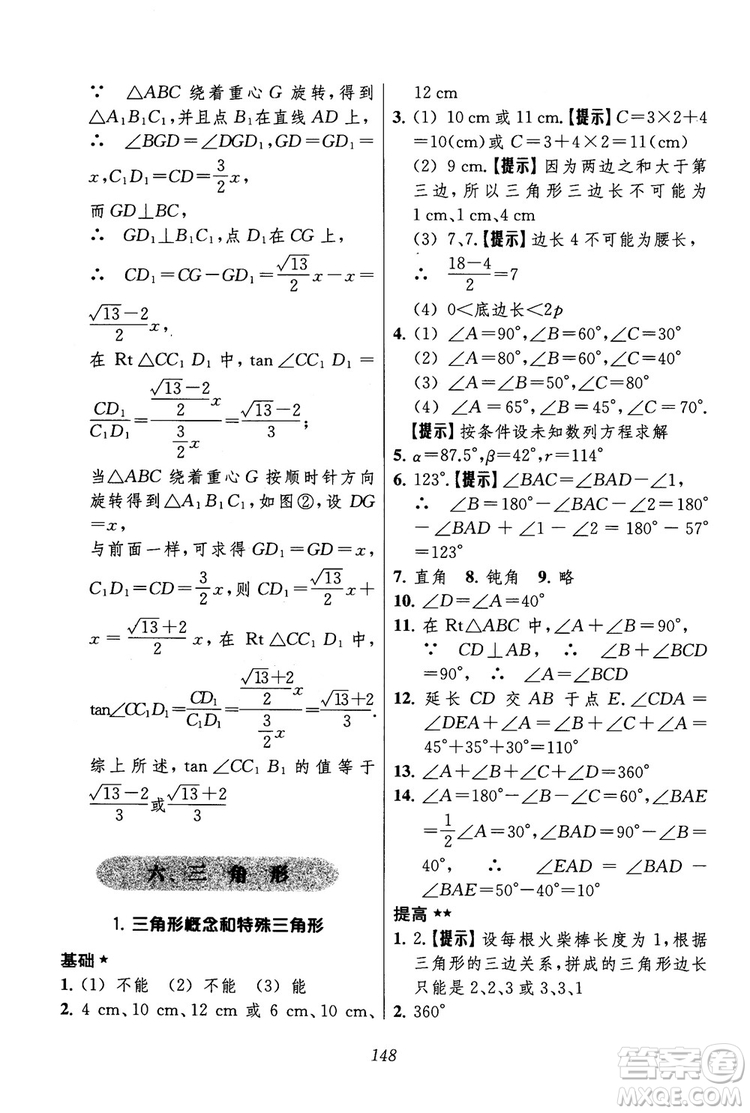 ∵ △ABC 绕着重心 G 旋转,得到
△A₁B₁C₁,并且点 B₁ 在直线 AD 上,
∴ ∠BGD=∠DGD₁, GD=GD₁=
x,C₁D₁=CD=3/2x,
而 GD⊥BC,
∴ GD₁⊥B₁C₁,点 D₁ 在 CG 上,
∴ CD₁=CG-GD₁=√13/2x-x=
(√13-2)/2x,
在 Rt△CC₁D₁ 中,tan∠CC₁D₁=
CD₁/C₁D₁=((√13-2)/2x)/(3/2x)=(√13-2)/3;
当△ABC 绕着重心 G 按顺时针方向
旋转得到△A₁B₁C₁,如图②,设 DG
=x,
与前面一样,可求得 GD₁=GD=x,
C₁D₁=CD=3/2x,则 CD₁=√13/2x+
x=(√13+2)/2x,在 Rt△CC₁D₁ 中,
tan∠CC₁D₁=CD₁/C₁D₁=((√13+2)/2x)/(3/2x)=(√13+2)/3.
综上所述,tan∠CC₁B₁ 的值等于
(√13-2)/3或(√13+2)/3
六、三角形
1. 三角形概念和特殊三角形
基础★
1. (1) 不能 (2) 不能 (3) 能
2. 4 cm、10 cm、12 cm 或 6 cm、10 cm、
12 cm
3. (1) 10 cm 或 11 cm.【提示】C=3×2+4
=10(cm)或 C=3+4×2=11(cm)
(2) 9 cm.【提示】因为两边之和大于第
三边,所以三角形三边长不可能为
1 cm、1 cm、4 cm
(3) 7、7.【提示】边长 4 不可能为腰长,
∴ (18-4)/2=7
(4) 0<底边长<2p
4. (1) ∠A=90°,∠B=60°,∠C=30°
(2) ∠A=80°,∠B=60°,∠C=40°
(3) ∠A=∠B=50°,∠C=80°
(4) ∠A=65°,∠B=45°,∠C=70°.
【提示】按条件设未知数列方程求解
5. α=87.5°,β=42°,r=114°
6. 123°.【提示】∠BAC=∠BAD-∠1,
∴ ∠B=180°-∠BAC-∠2=180°
-∠BAD+∠1-∠2=180°-57°
=123°
7. 直角 8. 钝角 9. 略
10. ∠D=∠A=40°
11. 在 Rt△ABC 中,∠A+∠B=90°,
∵ CD⊥AB, ∴ ∠B+∠BCD=
90°, ∴ ∠A=∠BCD
12. 延长 CD 交 AB 于点 E.∠CDA=
∠DEA+∠A=∠B+∠C+∠A=
45°+35°+30°=110°
13. ∠A+∠B+∠C+∠D=360°
14. ∠A=180°-∠B-∠C=80°,∠BAE=
1/2∠A=40°,∠BAD=90°-∠B=
40°, ∴ ∠EAD=∠BAD-
∠BAE=50°-40°=10°
提高★★
1. 2.【提示】设每根火柴棒长度为 1,根据
三角形的三边关系,拼成的三角形边长
只能是 2、2、3 或 3、3、1
2. 360°
148
答案卷
MXQE.COM